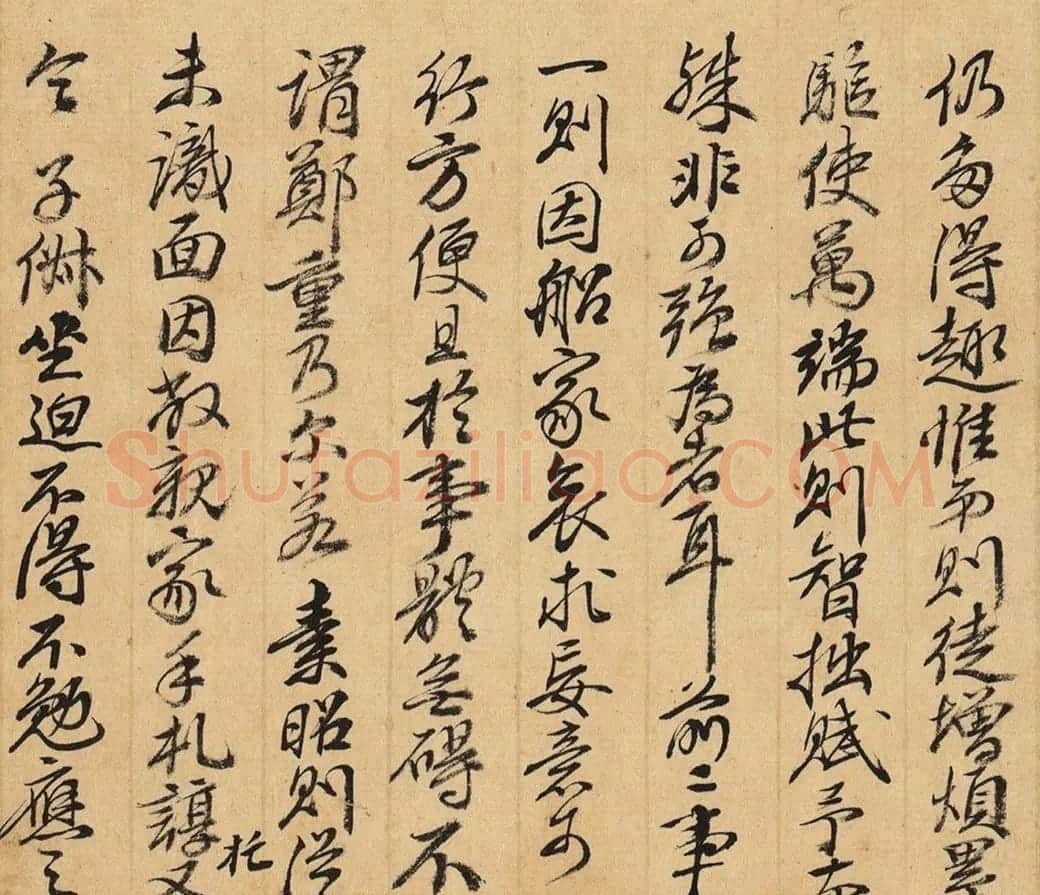 仍多得趣惟第則徒增煩累
驅使萬端此則智拙賦予
殊非可強為者耳前二事
一則因船家哀求妄意可
行方便且於事體無碍不
謂鄭重乃尔若素昭則從
未識面因敝親家手札諄
托
令子催坐迫不得不勉應之
Shufaziliao.COM